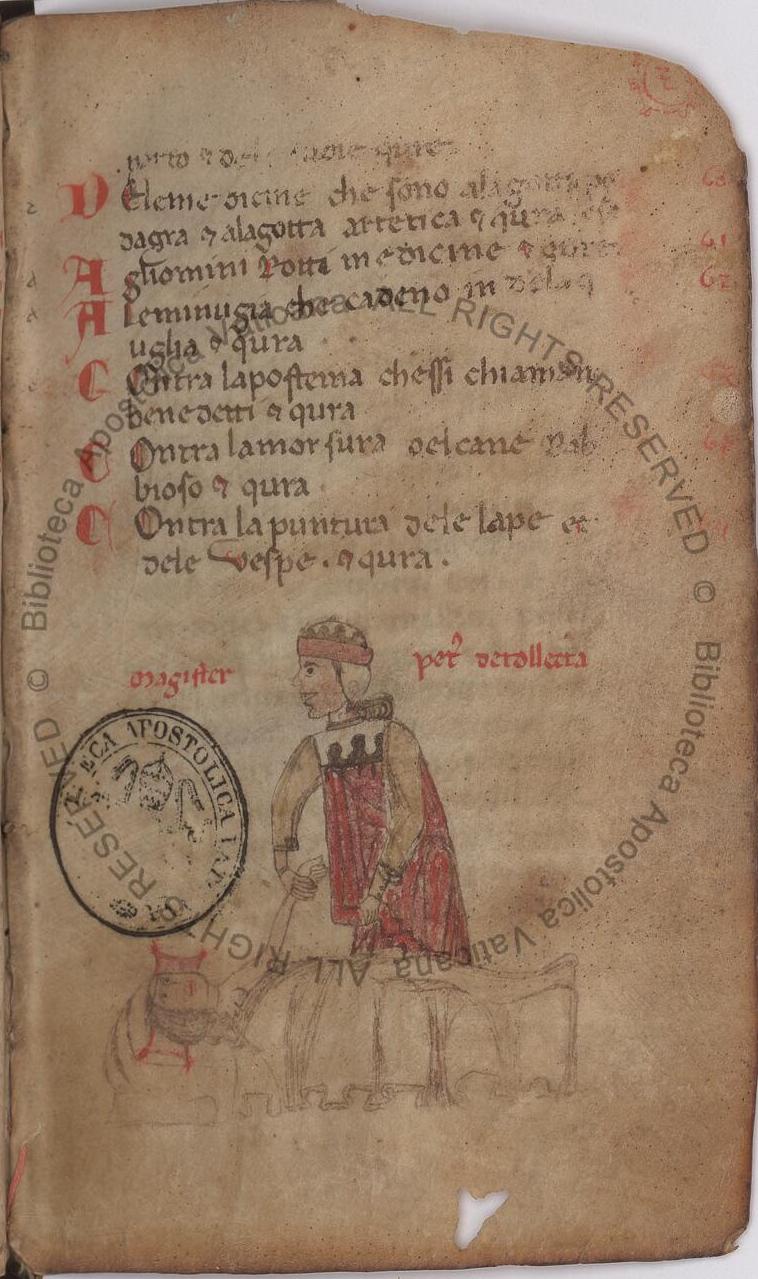 dele qure
D Eleme dicine che sono alagotta
dagra ⁊ alagotta artetica ⁊ qura
A gliomini Rotti medicine ⁊ qure
A leminugia che cadeno in
uglia ⁊ qura
C Ontra lapostema chessi chiamano
benedetti ⁊ qura
C Ontra lamorsura delcane Rab
bioso ⁊ qura
C Ontra la puntura dele lape et
dele vespe . ⁊ qura .
magister petr̄ detolletta
BIBLIOTECA APOSTOLICA VATICANA
© Biblioteca Apostolica Vaticana ALL RIGHTS RESERVED © Biblioteca Apostolica Vaticana ALL RIGHTS RESERVED